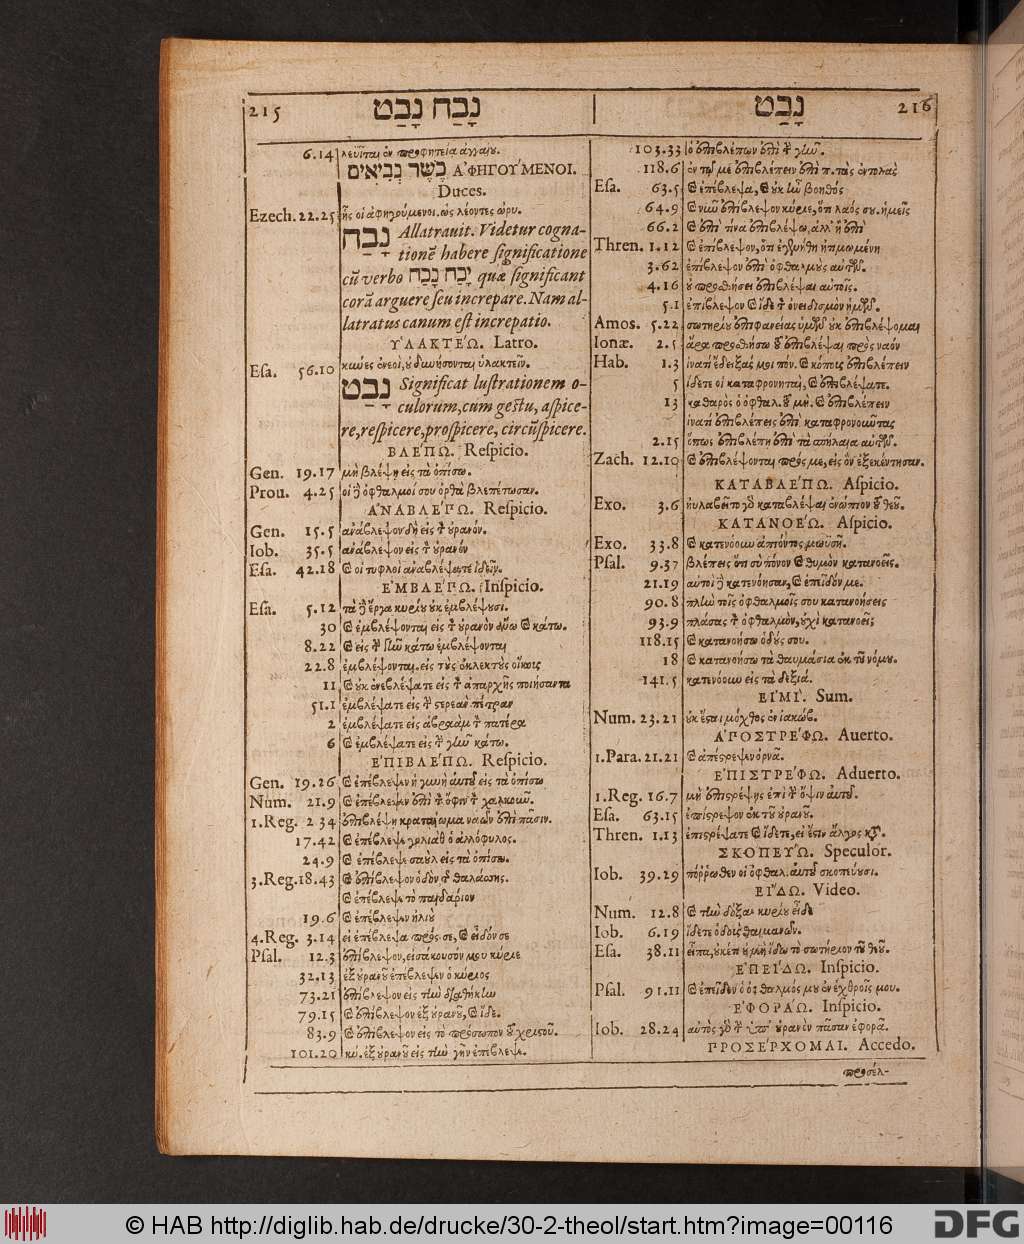 215 נָבַח נָבַט
6.14 λευῖται ἐν προφητείᾳ ἀγγαίου.
כְּשֶׁר נְבִיאִים ἈΦΗΓΟΎΜΕΝΟΙ.
Duces.
Ezech. 22.25 ἧς οἱ ἀφηγούμενοι ὡς λέοντες ὠρυ.
נָבַח Allatrauit. Videtur cogna-
tionē habere significatione
cū verbo יָכַח נָכַח quæ significant
corā arguere seu increpare. Nam al-
latratus canum est increpatio.
ὙΛΑΚΤΈΩ. Latro.
Esa. 56.10 κυώες ἐνεοὶ, οὐ δυνήσονται ὑλακτεῖν.
נָבַט Significat lustrationem o-
culorum, cum gestu, aspice-
re, respicere, prospicere, circūspicere.
ΒΛΈΠΩ. Respicio.
Gen. 19.17 μὴ βλέψῃ εἰς τὰ ὀπίσω.
Prou. 4.25 οἱ δὲ ὀφθαλμοί σου ὀρθὰ βλεπέτωσαν.
ἈΝΑΒΛΈΠΩ. Respicio.
Gen. 15.5 ἀνάβλεψον δὴ εἰς τὸν οὐρανόν.
Iob. 35.5 ἀνάβλεψον εἰς τὸν οὐρανὸν
Esa. 42.18 καὶ οἱ τυφλοὶ ἀναβλέψατε ἰδεῖν.
ἘΜΒΛΈΠΩ. Inspicio.
Esa. 5.12 τὰ δὲ ἔργα κυρίου οὐκ ἐμβλέψουσι.
30 καὶ ἐμβλέψονται εἰς τὸν οὐρανὸν ἄνω καὶ κάτω.
8.22 καὶ εἰς τὴν γῆν κάτω ἐμβλέψονται
22.8 ἐμβλέψονται εἰς τοὺς ἐκλεκτοὺς οἴκους
11 καὶ οὐκ ἐνεβλέψατε εἰς τὸν ἀπαρχῆς ποιήσαντα
51.1 ἐμβλέψατε εἰς τὴν στερεὰν πέτραν
2 ἐμβλέψατε εἰς ἀβραὰμ τὸν πατέρα
6 καὶ ἐμβλέψατε εἰς τὴν γῆν κάτω.
ἘΠΙΒΛΈΠΩ. Respicio.
Gen. 19.26 καὶ ἐπέβλεψεν ἡ γυνὴ αὐτοῦ εἰς τὰ ὀπίσω
Num. 21.9 καὶ ἐπέβλεψεν ἐπὶ τὸν ὄφιν τὸν χαλκοῦν.
1.Reg. 2 34 ἐπιβλέψῃ κραταίωμα ναῶν ἐπὶ πᾶσιν.
17.42 καὶ ἐπέβλεψε γολιὰθ ὁ ἀλλόφυλος.
24.9 καὶ ἐπέβλεψε σαοὺλ εἰς τὰ ὀπίσω.
3.Reg. 18.43 καὶ ἐπίβλεψον ὁδὸν τῆς θαλάσσης.
καὶ ἐπέβλεψε τὸ παιδάριον
19.6 καὶ ἐπέβλεψεν ἠλιοὺ
4.Reg. 3.14 εἰ ἐπέβλεψα πρός σε, καὶ εἶδόν σε
Psal. 12.3 ἐπίβλεψον, εἰσάκουσόν μου κύριε
32.13 ἐξ οὐρανοῦ ἐπέβλεψεν ὁ κύριος
73.21 ἐπίβλεψον εἰς τὴν διαθήκην
79.15 καὶ ἐπίβλεψον ἐξ οὐρανοῦ, καὶ ἴδε.
83.9 καὶ ἐπίβλεψον εἰς τὸ πρόσωπον τοῦ χριστοῦ.
101.20 κύ. ἐξ οὐρανοῦ εἰς τὴν γῆν ἐπέβλεψε.
נָבַט 216
103.33 ὁ ἐπιβλέπων ἐπὶ τὴν γῆν.
118.6 ἐν τῷ με ἐπιβλέπειν ἐπὶ π. τὰς ἐντολὰς
Esa. 63.5 καὶ ἐπέβλεψα, καὶ οὐκ ἦν βοηθός
64.9 καὶ νῦν ἐπίβλεψον κύριε, ὅτι λαός σου ἡμεῖς
66.2 καὶ ἐπὶ τίνα ἐπιβλέψω, ἀλλ' ἢ ἐπὶ
Thren. 1.12 καὶ ἐπίβλεψον, ὅτι ἐγενήθη ἠτιμωμένη
3.62 ἐπίβλεψον ἐπὶ ὀφθαλμοὺς αὐτῶν.
4.16 οὐ προσθήσει ἐπιβλέψαι αὐτοῖς.
5.1 ἐπίβλεψον καὶ ἴδε τὸν ὀνειδισμὸν ἡμῶν.
Amos. 5.22 σωτηρίου ἐπιφανείας ὑμῶν οὐκ ἐπιβλέψομαι
Ionæ. 2.5 ἆρα προσθήσω τοῦ ἐπιβλέψαι πρὸς ναόν
Hab. 1.3 ἱνατί ἔδειξάς μοι πόν. καὶ κόπους ἐπιβλέπειν
5 ἴδετε οἱ καταφρονηταὶ, καὶ ἐπιβλέψατε.
13 καθαρὸς ὁ ὀφθαλ. τοῦ μὴ. καὶ ἐπιβλέπειν
ἱνατί ἐπιβλέπεις ἐπὶ καταφρονοῦντας
2.15 ὅπως ἐπιβλέπῃ ἐπὶ τὰ σπήλαια αὐτῶν.
Zach. 12.10 καὶ ἐπιβλέψονται πρός με, εἰς ὃν ἐξεκέντησαν.
ΚΑΤΑΒΛΈΠΩ. Aspicio.
Exo. 3.6 ηὐλαβεῖτο γὰρ καταβλέψαι ἐνώπιον τοῦ θεοῦ.
ΚΑΤΑΝΟΈΩ. Aspicio.
Exo. 33.8 καὶ κατενόουν ἀπιόντος μωϋσῆ.
Psal. 9.37 βλέπεις ὅτι σὺ πόνον καὶ θυμὸν κατανοεῖς.
21.19 αὐτοὶ δὲ κατενόησαν, καὶ ἐπεῖδόν με.
90.8 πλὴν τοῖς ὀφθαλμοῖς σου κατανοήσεις
93.9 πλάσας τὸν ὀφθαλμὸν, οὐχὶ κατανοεῖ;
118.15 καὶ κατανοήσω ὁδούς σου.
18 καὶ κατανοήσω τὰ θαυμάσια ἐκ τοῦ νόμου.
141.5 κατενόουν εἰς τὰ δεξιά.
ΕἸΜΊ. Sum.
Num. 23.21 οὐκ ἔσται μόχθος ἐν ἰακώβ.
ἈΠΟΣΤΡΈΦΩ. Auerto.
1.Para. 21.21 καὶ ἀπέστρεψεν ὀρνᾶ.
ἘΠΙΣΤΡΈΦΩ. Aduerto.
1.Reg. 16.7 μὴ ἐπιστρέψῃς ἐπὶ τὴν ὄψιν αὐτοῦ.
Esa. 63.15 ἐπίστρεψον ἐκ τοῦ οὐρανοῦ.
Thren. 1.13 ἐπιστρέψατε καὶ ἴδετε, εἰ ἔστιν ἄλγος κατὰ.
ΣΚΟΠΕΎΩ. Speculor.
Iob. 39.29 πόῤῥωθεν οἱ ὀφθαλ. αὐτοῦ σκοπεύουσι.
ΕἼΔΩ. Video.
Num. 12.8 καὶ τὴν δόξαν κυρίου εἶδε
Iob. 6.19 ἴδετε ὁδοὺς θαιμανῶν.
Esa. 38.11 εἶπα, οὐκέτι οὐ μὴ ἴδω τὸ σωτήριον τοῦ θεοῦ.
ἘΠΕΊΔΩ. Inspicio.
Psal. 91.11 καὶ ἐπεῖδεν ὁ ὀφθαλμός μου ἐν ἐχθροῖς μου.
ἘΦΟΡΆΩ. Inspicio.
Iob. 28.24 αὐτὸς γὰρ τὴν ὑπ' οὐρανὸν πᾶσαν ἐφορᾷ.
ΠΡΟΣΈΡΧΟΜΑΙ. Accedo.
προσέλ-
© HAB http://diglib.hab.de/drucke/30-2-theol/start.htm?image=00116 DFG